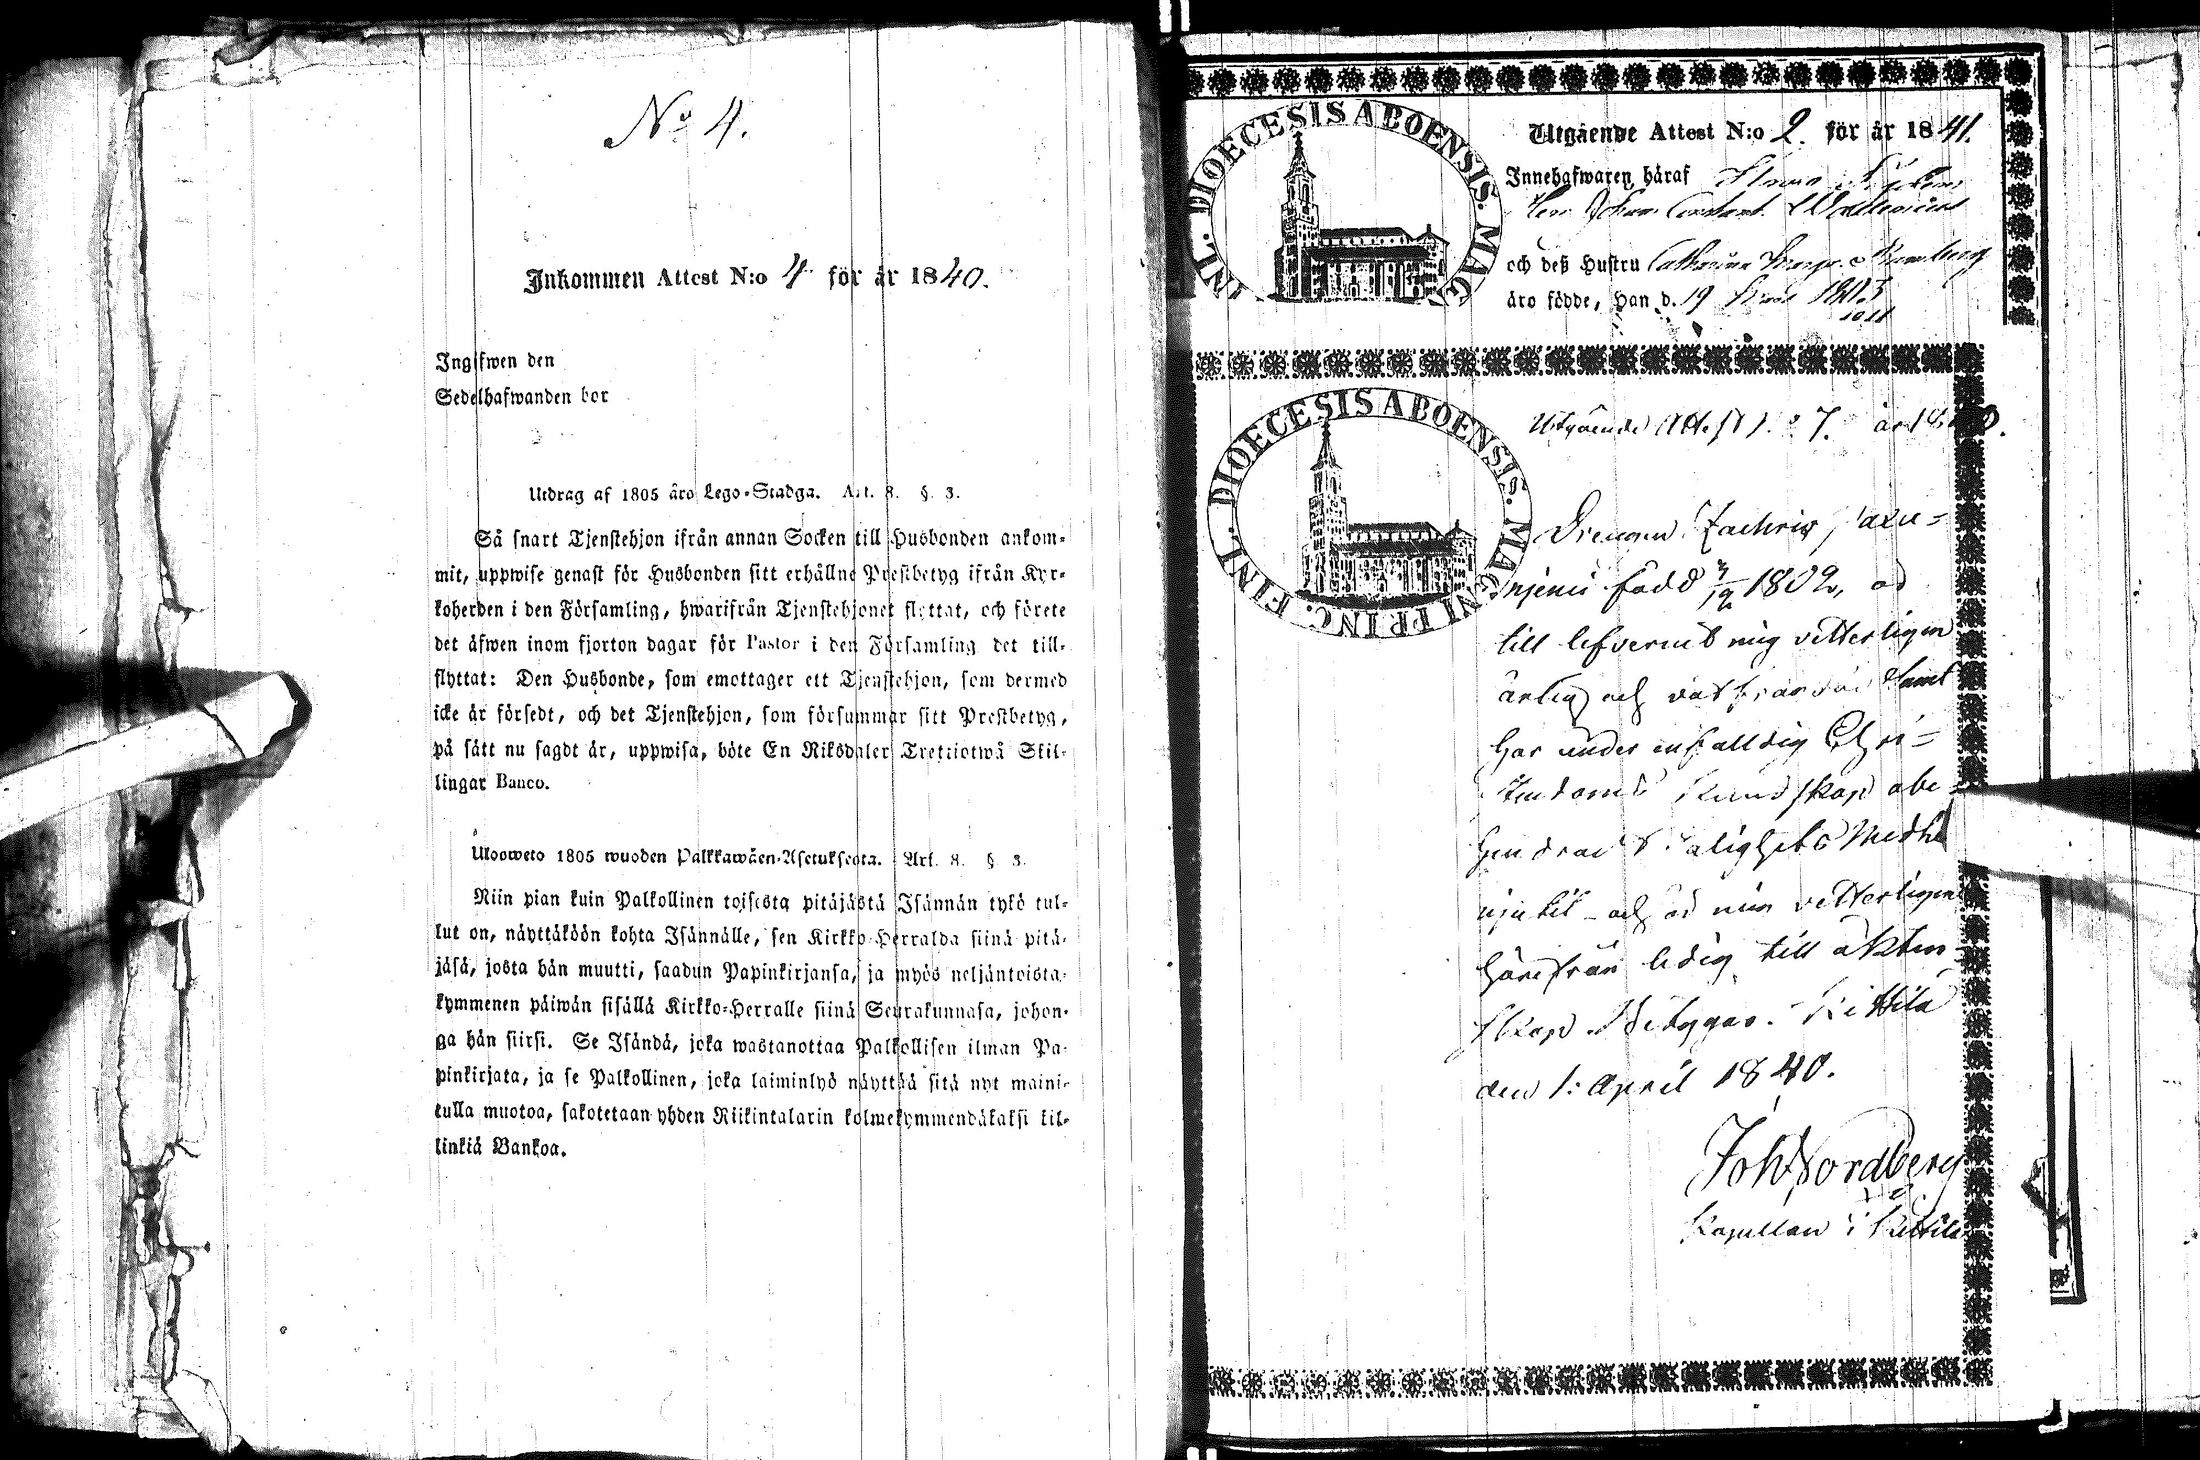 No 4.
Inkommen Attest N:o 4 för år 1840.
Ingifwen den
Sedelhafwanden bor
Utdrag af 1805 års Lego-Stadga. Art. 8. §. 3.
Så snart Tjenstehjon ifrån annan Socken till Husbonden ankom-
mit, uppwise genast för Husbonden sitt erhållne Prestbetyg ifrån Kyr-
koherden i den Församling, hwarifrån Tjenstehjonet flyttat, och förete
det äfwen inom fjorton dagar för Pastor i den Församling det till-
flyttat: Den Husbonde, som emottager ett Tjenstehjon, som dermed
icke är försedt, och det Tjenstehjon, som försummar sitt Prestbetyg,
på sätt nu sagdt är, uppwisa, böte En Riksdaler Trettiotwå Skil-
lingar Banco.
Uloosweto 1805 wuoden Palkkawäen-Asetuksesta. Art. 8. § 3.
Niin pian kuin Palkollinen toisesta pitäjästä Isännän tykö tul-
lut on, näyttäköön kohta Isännälle, sen Kirkko-Herralda siinä pitä-
jäsä, josta hän muutti, saadun Papinkirjansa, ja myös neljäntoista-
kymmenen päiwän sisällä Kirkko-Herralle siinä Seurakunnasa, johon-
ga hän siirsi. Se Isändä, joka wastanottaa Palkollisen ilman Pa-
pinkirjata, ja se Palkollinen, joka laiminlyö näyttää sitä nyt maini-
tulla muotoa, sakotetaan yhden Riikintalarin kolmekymmendäkaksi kil-
linkiä Bankoa.
INL. DIOECESIS ABOENSIS. MAG
Utgående Attest N:o 2. för år 1841.
Innehafwaren häraf
Herr Johan Constant.
och deß Hustru Catharina
äro födde, han d. 19
FINL. DIOECESIS ABOENSIS. MAGNI PRINC.
Utgående Attest N:o 7. år 1840.
Drengen Zachris
född 1802, är
till lefvernet mig vetterligen
ärlig och samt
har under enfaldig Chri-
stendoms Kundskap obe-
hindrad Salighets Medlens
njutit och är min vetterligen
härifrån ledig till äkten-
skap. Betygas. Kittilä
den 1: April 1840.
Joh Nordberg
Kapellan i Kittilä